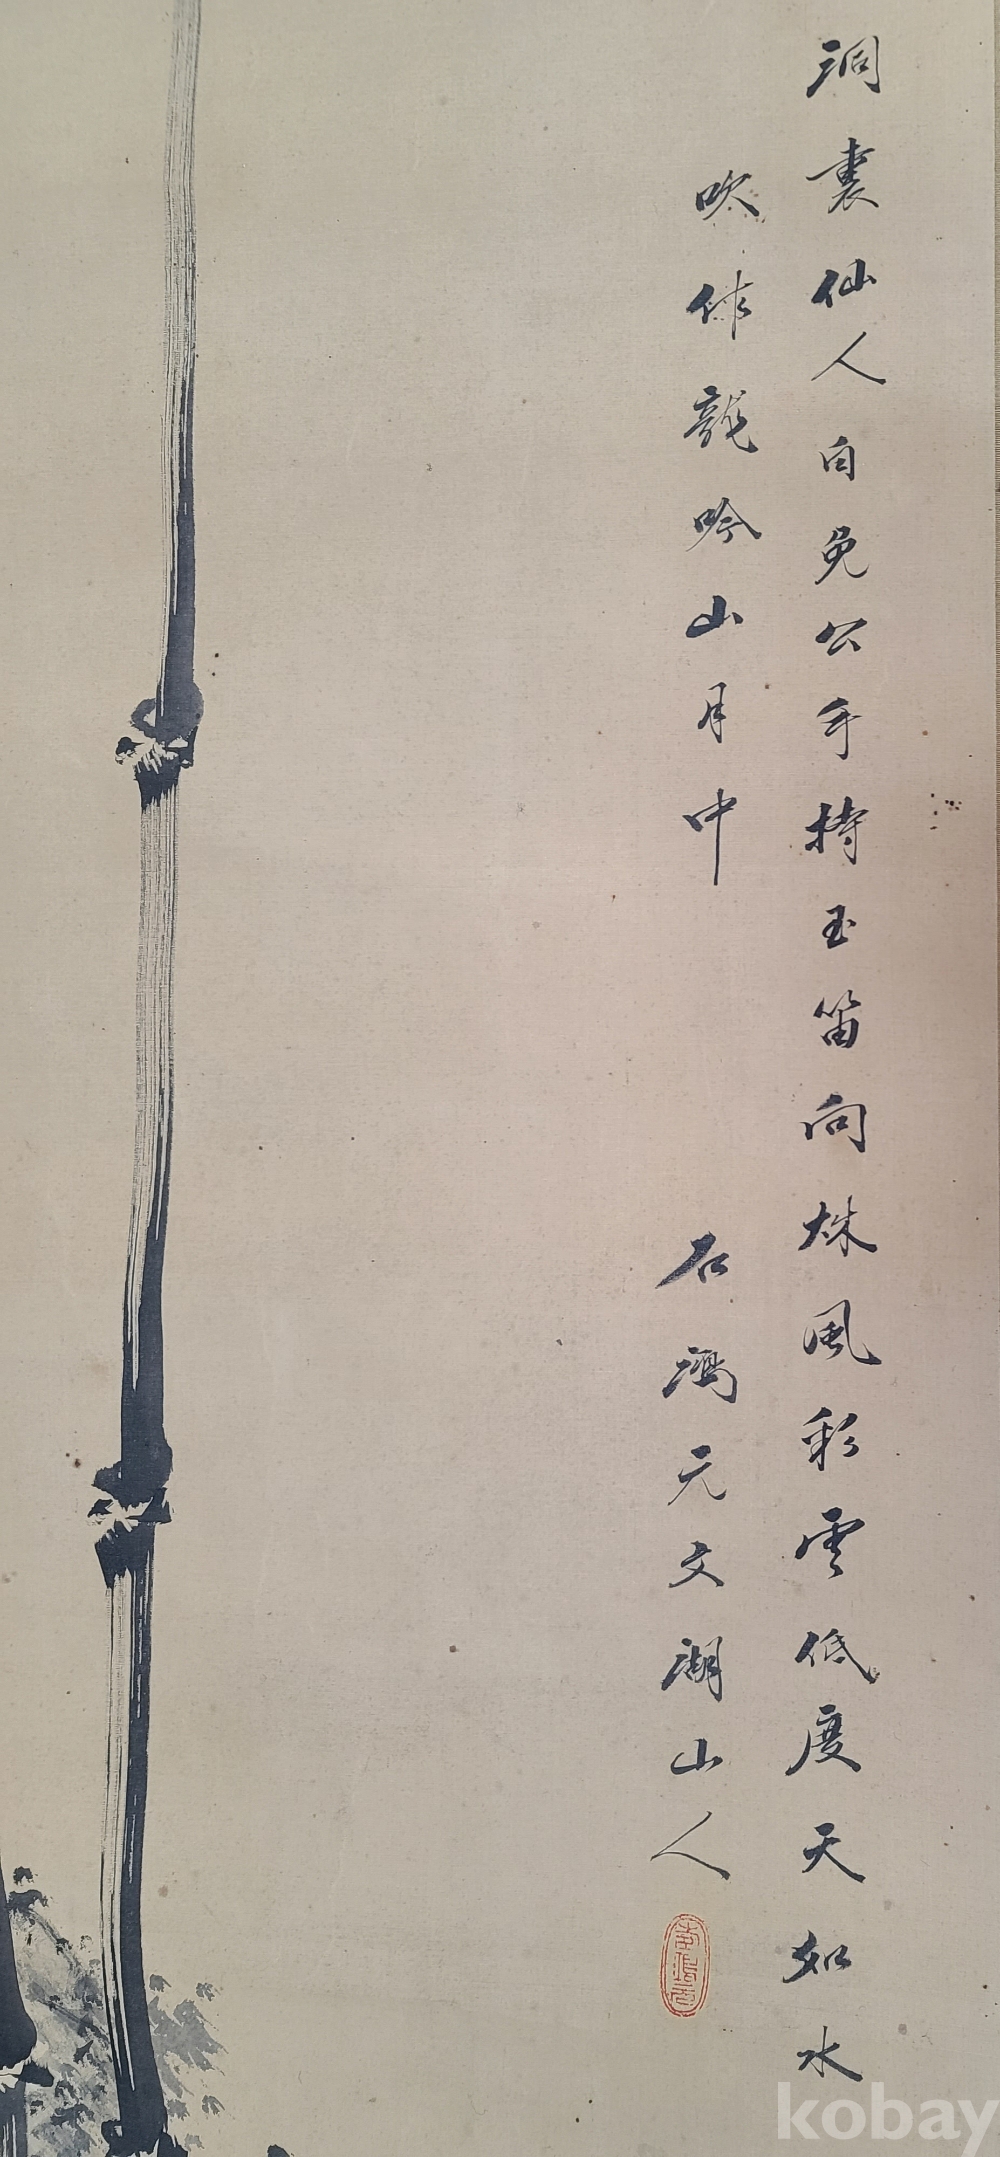 洞裏仙人白兔公手持玉笛向秋風彩雲低度天如水
吹作龍吟山月中
石濤元文湖山人
kobay